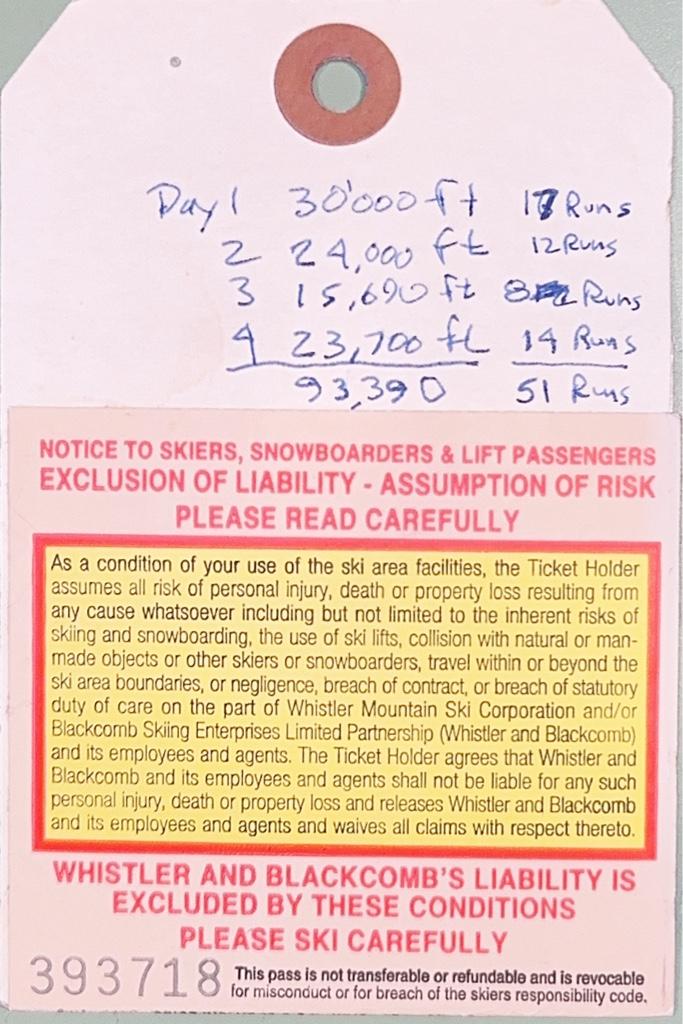 Day 1 30'000 ft 17 Runs
2 24,000 ft 12 Runs
3 15,690 ft 8 Runs
4 23,700 ft 14 Runs
93,390 51 Runs
NOTICE TO SKIERS, SNOWBOARDERS & LIFT PASSENGERS
EXCLUSION OF LIABILITY - ASSUMPTION OF RISK
PLEASE READ CAREFULLY
As a condition of your use of the ski area facilities, the Ticket Holder
assumes all risk of personal injury, death or property loss resulting from
any cause whatsoever including but not limited to the inherent risks of
skiing and snowboarding, the use of ski lifts, collision with natural or man-
made objects or other skiers or snowboarders, travel within or beyond the
ski area boundaries, or negligence, breach of contract, or breach of statutory
duty of care on the part of Whistler Mountain Ski Corporation and/or
Blackcomb Skiing Enterprises Limited Partnership (Whistler and Blackcomb)
and its employees and agents. The Ticket Holder agrees that Whistler and
Blackcomb and its employees and agents shall not be liable for any such
personal injury, death or property loss and releases Whistler and Blackcomb
and its employees and agents and waives all claims with respect thereto.
WHISTLER AND BLACKCOMB'S LIABILITY IS
EXCLUDED BY THESE CONDITIONS
PLEASE SKI CAREFULLY
393718 This pass is not transferable or refundable and is revocable
for misconduct or for breach of the skiers responsibility code.